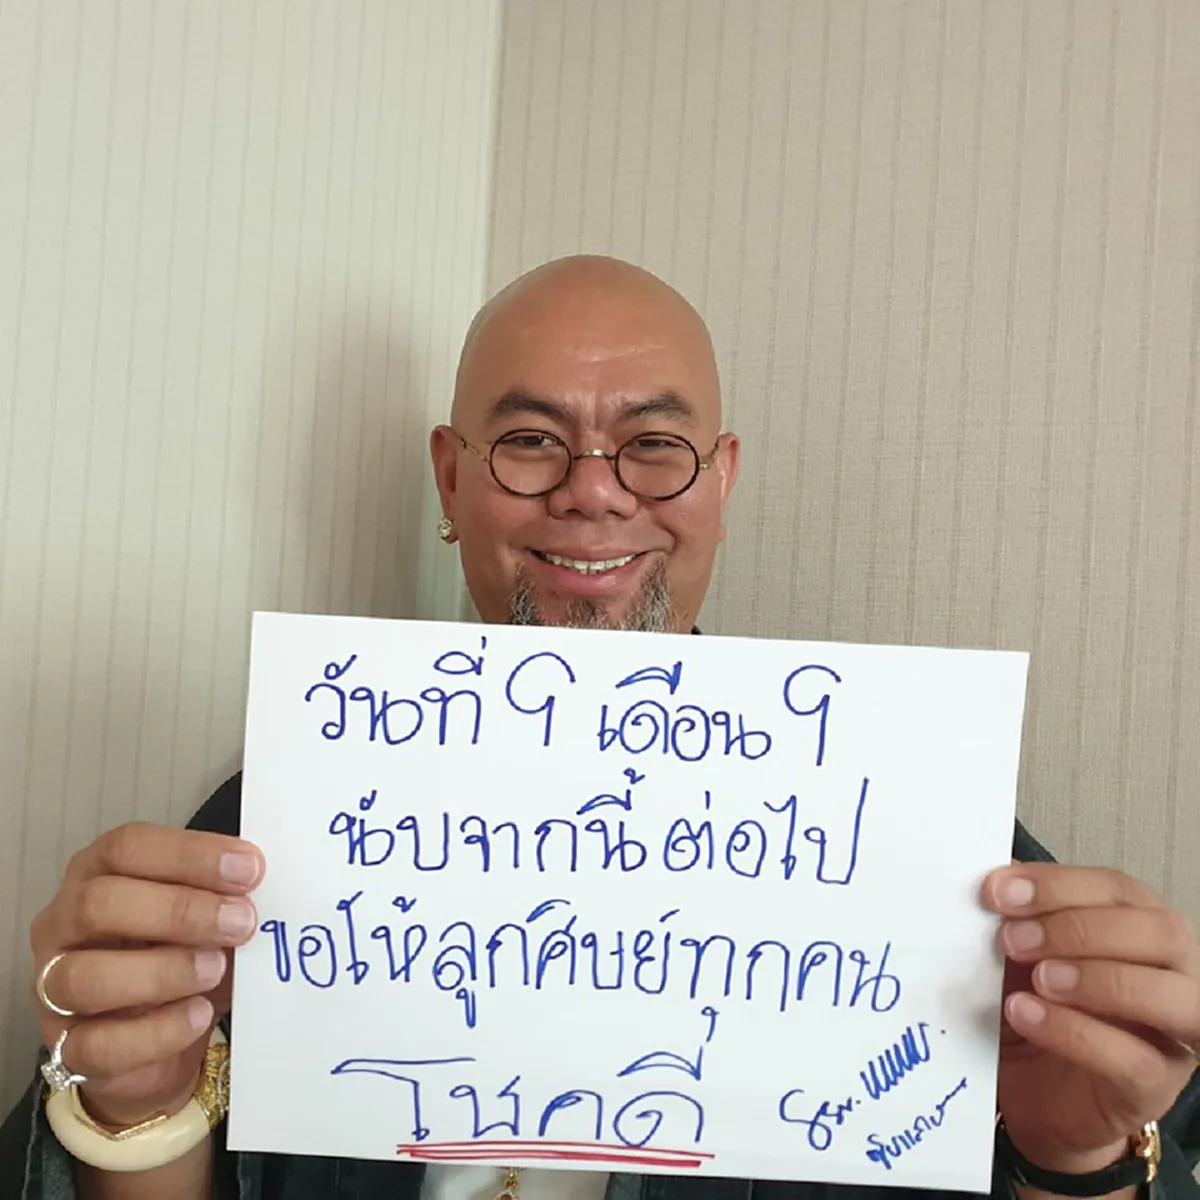 วันที่ 9 เดือน 9
นับจากนี้ ต่อไป
ขอให้ลูกศิษย์ทุกคน
โชคดี